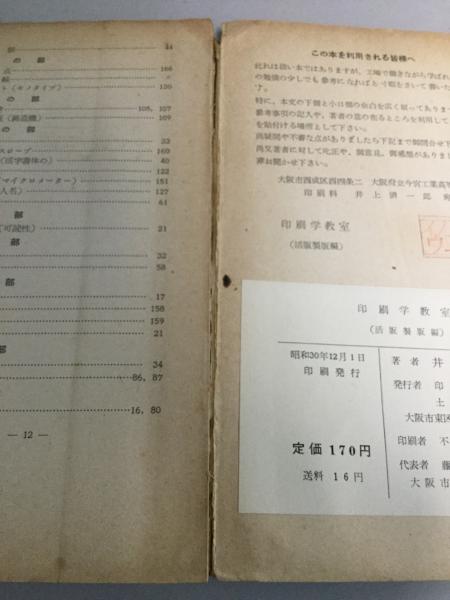 部
44
の 部
点
166
線
6
ト(モノタイプ)
130
の 部
倉
108, 107
(鋳造機)
109
の 部
33
スコープ
40
(活字書体の)
31
(マイクロメーター)
151
人名)
127
61
部
(可読性)
21
部
32
58
部
17
158
159
21
部
34
86, 87
16, 80
— 12 —
この本を利用される皆様へ
此れは拙い本ではありますが、工場で働きながら学ばれ
の勉強の少しでも参考になればと寸暇をさいて書いた
す。
特に、本文の下欄と小口側の余白を広く取ってありま
参考事項の記入や、著者の意の在るところを利用して
を貼付ける場所として下さい。
尚疑問や不審な点がありましたら下記まで御問合せ下
尚又著者に対して叱正や、御意見、御感想がありまし
御聞かせ下さい。
大阪市西成区西四条二 大阪府立今宮工業高等
印刷科 井上清一郎 宛
印刷学教室
(活版製版編)
印刷学教室
(活版製版編)
昭和30年12月1日
印刷発行
著者 井
発行者 印
土
大阪市東区
定価 170円
印刷者 不
送料 16円
代表者 藤
大阪市